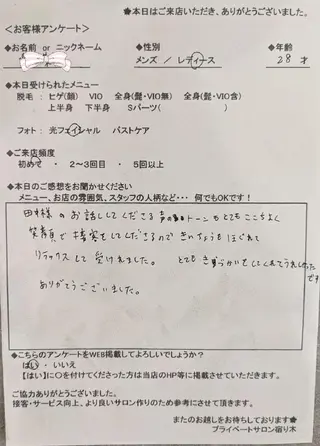 ★本日はご来店いただき、ありがとうございました。
＜お客様アンケート＞
◆お名前 or ニックネーム ◆性別 ◆年齢
メンズ / レディース 28才
◆本日受けられたメニュー
脱毛 : ヒゲ(顔) VIO 全身(髭・VIO無) 全身(髭・VIO含)
上半身 下半身 Sパーツ( )
フォト : 光フェイシャル バストケア
◆ご来店頻度
初めて ・ 2～3回目 ・ 5回以上
◆本日のご感想をお聞かせください
メニュー、お店の雰囲気、スタッフの人柄など・・・ 何でもOKです！
のお話ししてくださる声のトーンもとてもここちよく
笑顔で接客をしてくださるのできんちょうもほぐれて
リラックスして受けれました。 とても きづかいをしてくれてうれしかった
です
ありがとうございました。
◆こちらのアンケートをWEB掲載してよろしいでしょうか？
はい ・ いいえ
【はい】に〇を付けてくださった方は当店のHP等に掲載させていただきます。
ご協力ありがとうございました。
接客・サービス向上、より良いサロン作りのため参考にさせて頂きます。
またのお越しをお待ちしております★
プライベートサロン宿り木